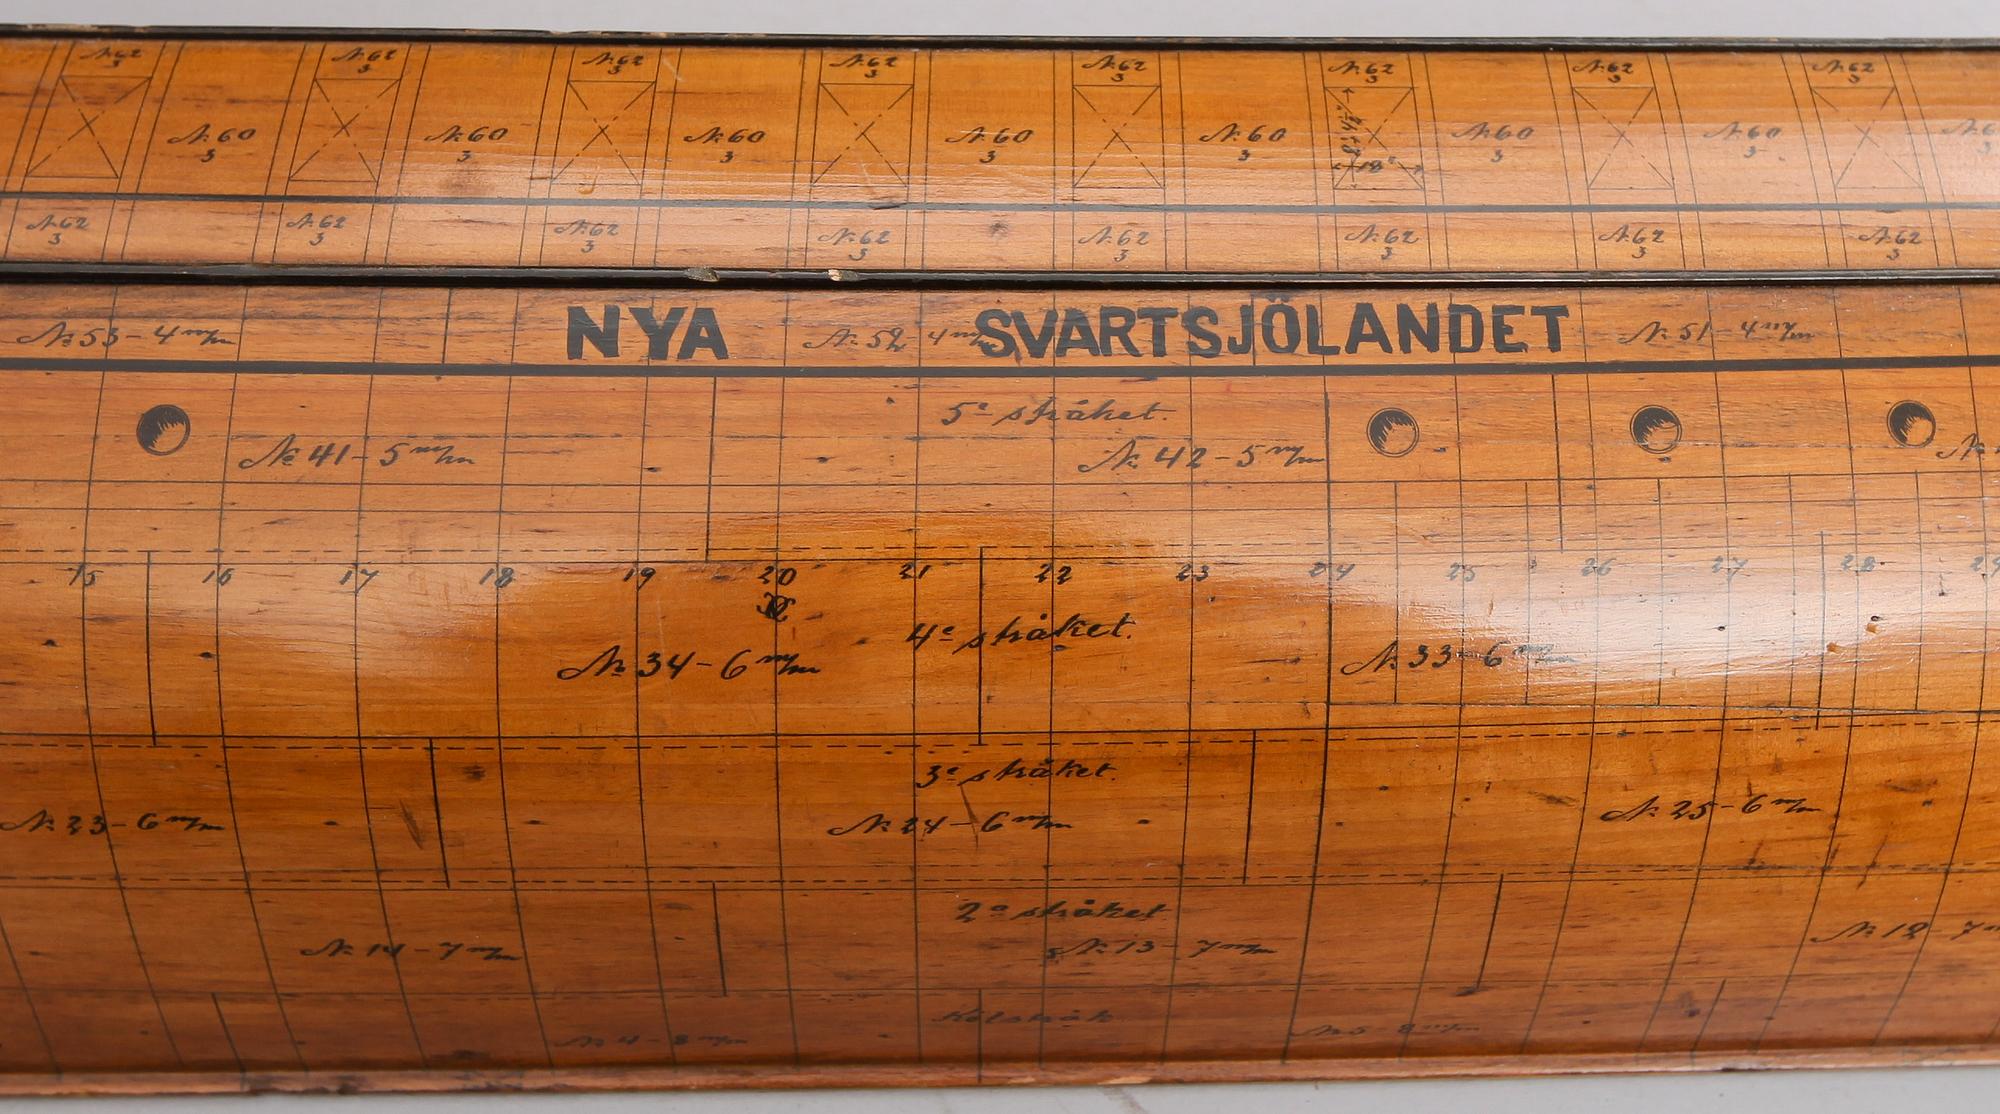 No 62 No 62 No 62 No 62 No 62 No 62 No 62 No 62
3 3 3 3 3 3 3 3
No 60 No 60 No 60 No 60 No 60 No 60 No 60
3 3 3 3 3 3 3 3
18"
No 62 No 62 No 62 No 62 No 62 No 62 No 62 No 62
3 3 3 3 3 3 3 3
No 53 - 4 m/m NYA No 52 - 4 m/m SVARTSJÖLANDET No 51 - 4 m/m
5e stråket.
No 41 - 5 m/m No 42 - 5 m/m
15 16 17 18 19 20 21 22 23 24 25 26 27 28 29
4e stråket.
No 34 - 6 m/m No 33 - 6 m/m
3e stråket.
No 23 - 6 m/m No 24 - 6 m/m No 25 - 6 m/m
2a stråket
No 14 - 7 m/m No 13 - 7 m/m No 12 - 7 m
Kölstråk
No 4 - 8 m/m No 5 - 8 m/m